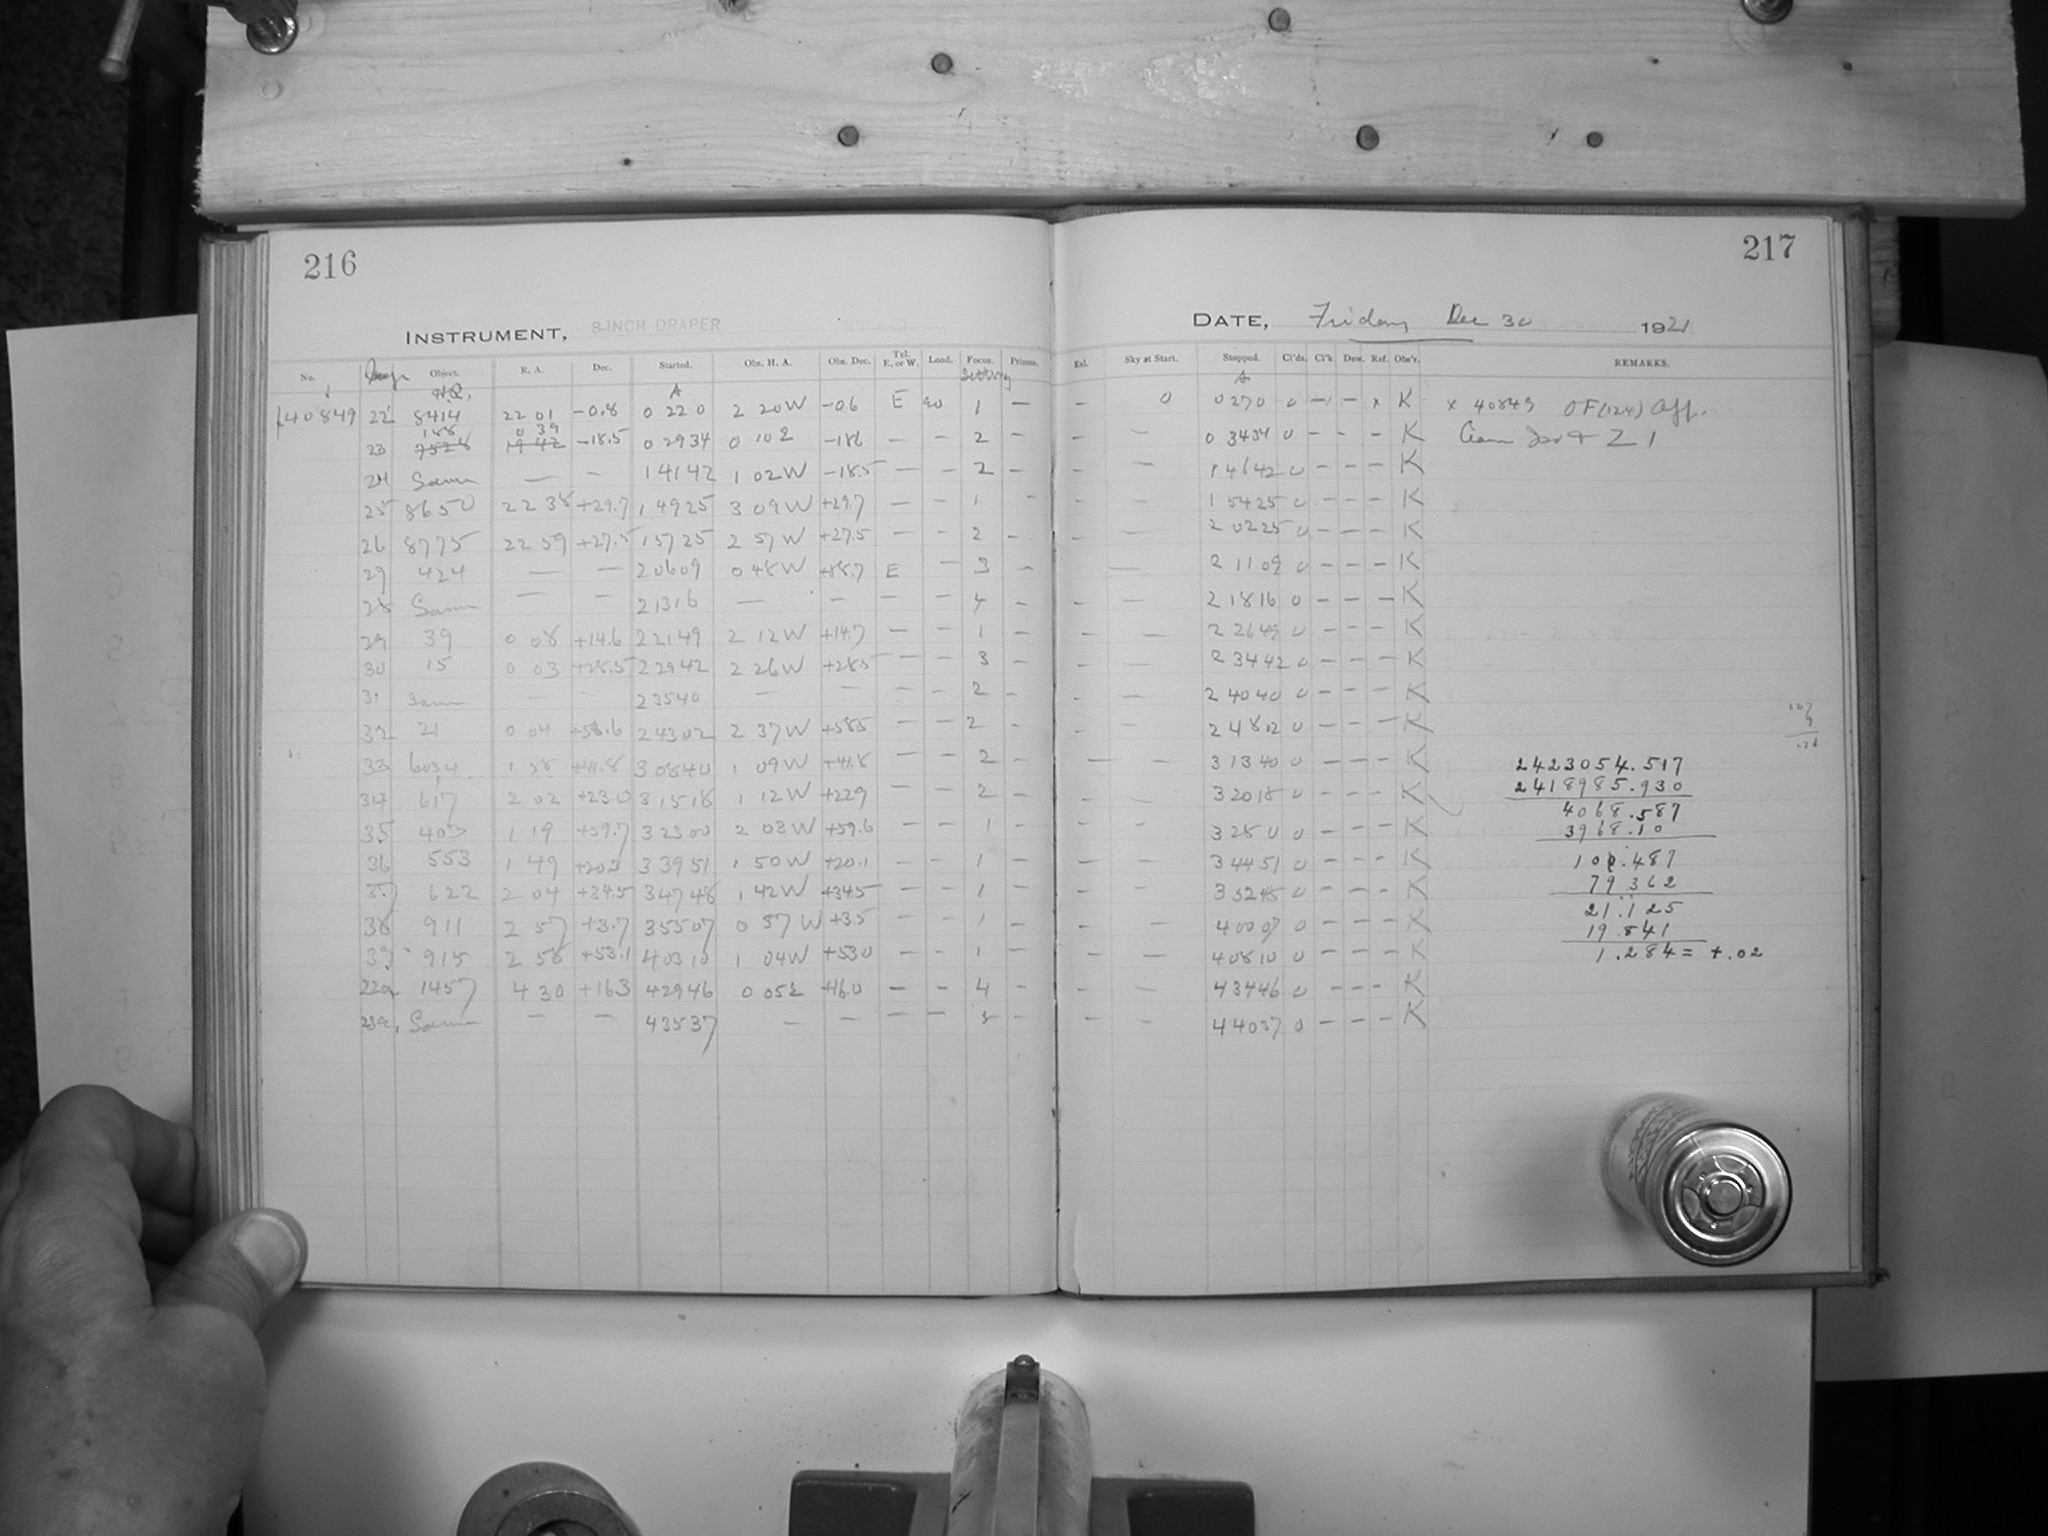 216
INSTRUMENT, 8-INCH DRAPER
No. Object. R. A. Dec. Started. Obs. H. A. Obs. Dec. Tel. E. or W. Load. Focus. Prisms.
40849 22 8414 22 01 -0.8 0 22 0 2 20W -0.6 E 1 —
188 0 39
23 7528 19 42 -18.5 0 29 34 0 10 E -18.6 — — 2 —
24 Same — — 1 41 42 1 02W -18.5 — — 2 —
25 8650 22 38 +29.7 1 49 25 3 09W +29.7 — — 1 —
26 8775 22 59 +27.5 1 57 25 2 57W +27.5 — — 2 —
27 424 — — 2 06 09 0 48W +88.7 E — 3 —
28 Same — — 2 13 16 — — — — 4 —
29 39 0 08 +14.6 2 21 49 2 12W +14.7 — — 1 —
30 15 0 03 +28.5 2 29 42 2 26W +28.5 — — 3 —
31 Same — — 2 35 40 — — — — 2 —
32 21 0 04 +58.6 2 43 02 2 37W +58.5 — — 2 —
33 603 1 58 +41.8 3 08 40 1 09W +41.8 — — 2 —
34 617 2 02 +23.0 3 15 18 1 12W +22.9 — — 2 —
35 403 1 19 +59.7 3 23 00 2 03W +59.6 — — 1 —
36 553 1 49 +20.3 3 39 51 1 50W +20.1 — — 1 —
37 622 2 04 +34.5 3 47 48 1 42W +34.5 — — 1 —
38 911 2 57 +3.7 3 55 07 0 57W +3.5 — — 1 —
39 915 2 58 +53.1 4 03 10 1 04W +53.0 — — 1 —
22a 1457 4 30 +16.3 4 29 46 0 05E +16.0 — — 4 —
23a Same — — 4 35 37 — — — — 5 —
217
DATE, Friday Dec 30 1921
Exl. Sky at Start. Stopped. Cl'ds. Cl'k Dew. Ref. Obs'r. REMARKS.
0 0 27 0 0 — — x K x 40849 OF(124) Aff.
— — 0 34 34 0 — — — K
— — 1 46 42 0 — — — K
— — 1 54 25 0 — — — K
— — 2 02 25 0 — — — K
— — 2 11 09 0 — — — K
— — 2 18 16 0 — — — K
— — 2 26 49 0 — — — K
— — 2 34 42 0 — — — K
— — 2 40 40 0 — — — K
— — 2 48 02 0 — — — K
— — 3 13 40 0 — — — K
— — 3 20 18 0 — — — K
— — 3 28 0 0 — — — K
— — 3 44 51 0 — — — K
— — 3 52 48 0 — — — K
— — 4 00 07 0 — — — K
— — 4 08 10 0 — — — K
— — 4 34 46 0 — — — K
— — 4 40 37 0 — — — K
2423054.517
2418985.930
4068.587
3968.10
100.487
79 362
21.125
19.841
1.284 = +.02